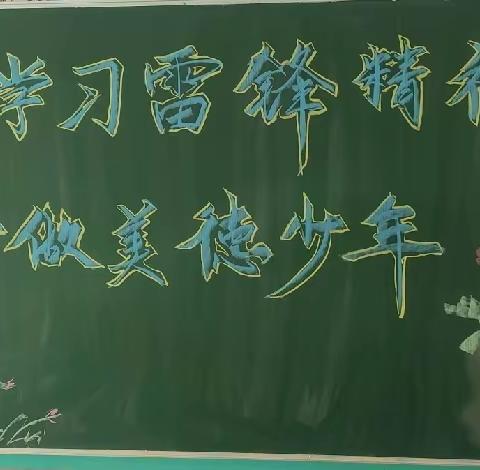 学习雷锋精神
做美德少年